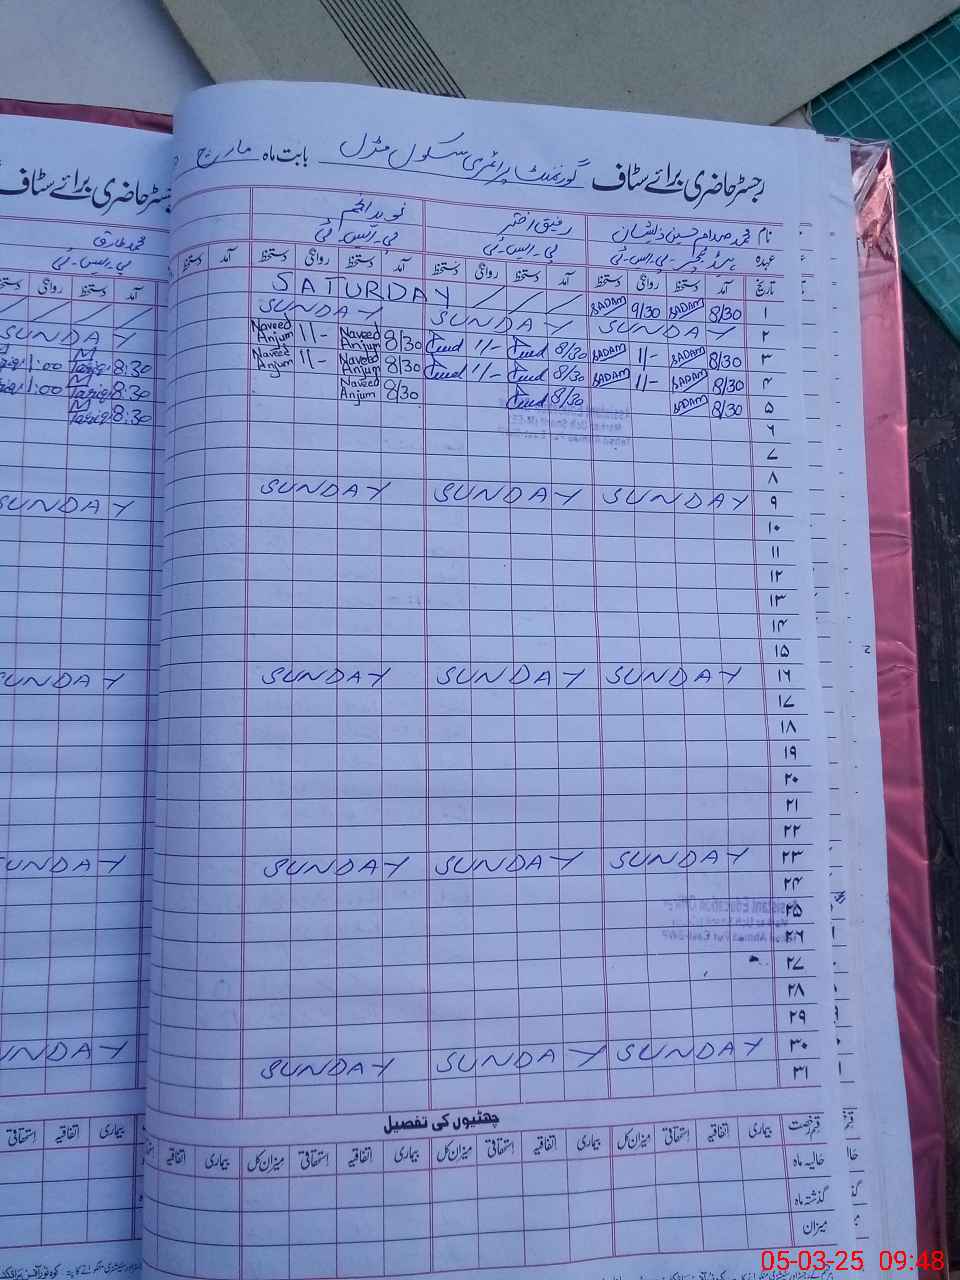 رجسٹر حاضری برائے سٹاف گورنمنٹ پرائمری سکول بابت ماہ مارچ
نام محمد صدام حسین ذیشان رفیق اختر نوید انجم
عہدہ ہیڈ ٹیچر پی۔ایس۔ٹی پی۔ایس۔ٹی پی۔ایس۔ٹی
تاریخ آمد دستخط روانگی دستخط آمد دستخط روانگی دستخط آمد دستخط روانگی دستخط آمد دستخط
۱ 8/30 SADAM 9/30 SADAM / / / SATURDAY
۲ SUNDAY SUNDAY SUNDAY
۳ 8/30 SADAM 1/- SADAM 8/30 1/- 8/30 Naveed Anjum 1/- Naveed Anjum
۴ 8/30 SADAM 1/- SADAM 8/30 1/- 8/30 Naveed Anjum 1/- Naveed Anjum
۵ 8/30 SADAM 8/30 8/30 Naveed Anjum
۶
۷
۸
۹ SUNDAY SUNDAY SUNDAY
۱۰
۱۱
۱۲
۱۳
۱۴
۱۵
۱۶ SUNDAY SUNDAY SUNDAY
۱۷
۱۸
۱۹
۲۰
۲۱
۲۲
۲۳ SUNDAY SUNDAY SUNDAY
۲۴
۲۵
۲۶
۲۷
۲۸
۲۹
۳۰ SUNDAY SUNDAY SUNDAY
۳۱
چھٹیوں کی تفصیل
قسم رخصت بیماری اتفاقیہ استحقاقی میزان کل بیماری اتفاقیہ استحقاقی میزان کل بیماری اتفاقیہ استحقاقی میزان کل بیماری اتفاقیہ
حالیہ ماہ
گذشتہ ماہ
میزان
رجسٹر حاضری برائے سٹاف
محمد طارق
پی۔ایس۔ٹی
آمد دستخط روانگی دستخط
/ / / /
SUNDAY
8:30 M Tariq 1:00
8:30 M Tariq 1:00
8:30 M Tariq
SUNDAY
SUNDAY
SUNDAY
SUNDAY
بیماری اتفاقیہ استحقاقی
05-03-25 09:48